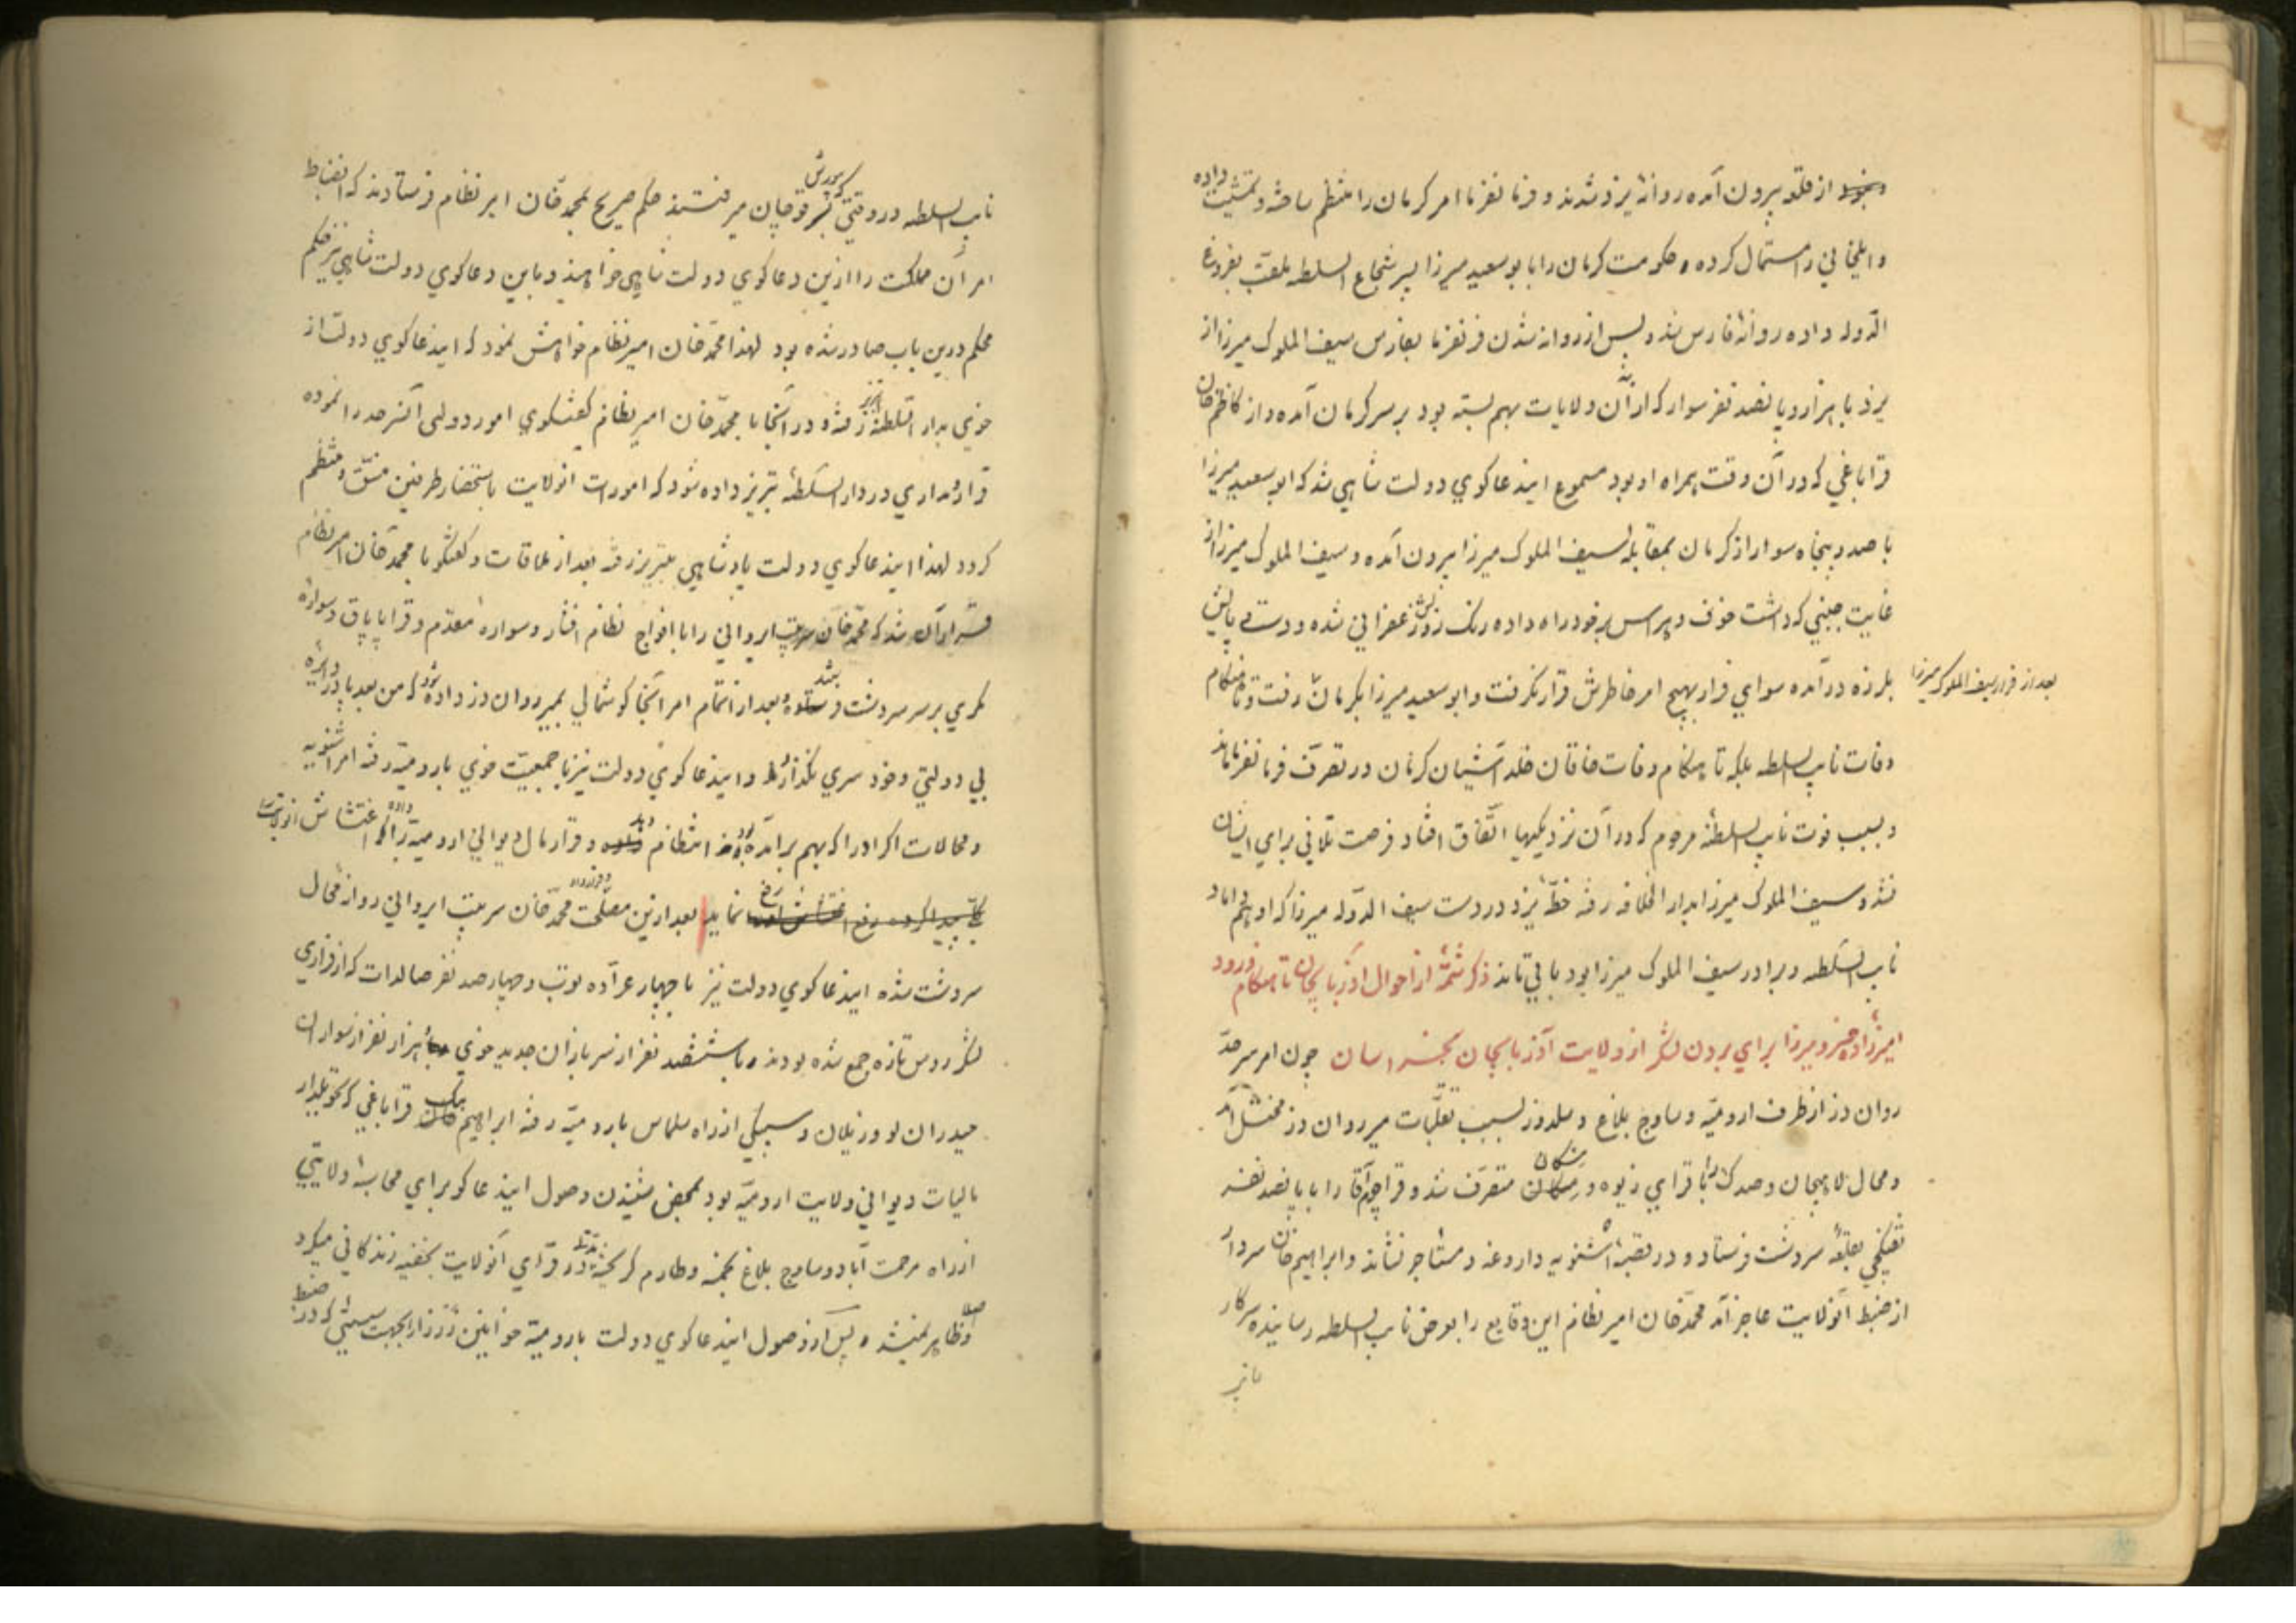 از قلعه بیرون آمده روانۀ یزد شدند و فرمانفرما امر کرمان را منتظم ساخته و تمشیت داده
و ایلخانی را استمال کرده و حکومت کرمان را با بو سعید میرزا پسر شجاع السلطه ملقب بفروغ
الدوله داده روانۀ فارس شد و پس از روانه شدن فرمانفرما بفارس سیف الملوک میرزا از
یزد با هزار و پانصد نفر سوار که از آن ولایات بهم بسته بود بر سر کرمان آمده و از کاظم خان
قراباغی که در آن وقت همراه او بود مسموع ایندعاکوی دولت شاهی شد که ابو سعید میرزا
با صد و پنجاه سوار از کرمان بمقابله سیف الملوک میرزا بیرون آمده و سیف الملوک میرزا از
غایت جبنی که داشت خوف و هراس بر خود راه داده رنک رویش زعفرانی شده و دست و پایش
بلرزه در آمده سوای فرار بهیچ امر خاطرش قرار نکرفت و ابو سعید میرزا بکرمان رفت و تا هنکام
بعد از فرار سیف الملوک میرزا
وفات نایب السلطه بلکه تا هنکام وفات خاقان خلد آشیان کرمان در تصرف فرمانفرما ماند
و بسبب فوت نایب السلطنه مرحوم که در آن نزدیکیها اتفاق افتاد فرصت تلافی برای ایشان
نشد و سیف الملوک میرزا بدار الخلافه رفته خطۀ یزد در دست سیف الدوله میرزا که او هم داماد
نایب السلطه و برادر سیف الملوک میرزا بود باقی ماند ذکر شمۀ از احوال آذربایجان تا هنکام ورود
امیرزاده خسرو میرزا برای بردن لشکر از ولایت آذربایجان بخراسان چون امر سرحد
روان دز از طرف ارومیه و ساوج بلاغ و سلدوز بسبب تغلبات میر روان دز مختل آمد
و محال لاهیجان و صدک را با قرای زیوه و متصرف شد و قراچه آقا را با پانصد نفر
تفنکچی بقلعۀ سردشت فرستاد و در قصبۀ اشنویه داروغه و مستاجر نشاند و ابراهیم خان سردار
از ضبط آنولایت عاجز آمد محمد خان امیر نظام این وقایع را بعرض نایب السلطه رسانیده سرکار
نایب
نایب السلطه در وقتی که بیورش قوچان میرفتند حکم صریح بمحمد خان امیر نظام فرستادند که انضباط
امر آن مملکت را از این دعاکوی دولت شاهی خواهند و باین دعاکوی دولت شاهی نیز حکم
محکم درین باب صادر شده بود لهذا محمد خان امیر نظام خواهش نمود که ایندعاکوی دولت از
خوی بدار السلطنۀ تبریز رفته و در آنجا با محمد خان امیر نظام کفتکوی امور دولتی آنسرحد را نموده
قراردادی در دار السلطنۀ تبریز داده شود که امورات آنولایت باستحضار طرفین منسق و منتظم
کردد لهذا ایندعاکوی دولت پادشاهی بتبریز رفته بعد از ملاقات و کفتکو با محمد خان امیر نظام
قرار آن شد که محمد خان سرتیپ ایروانی را با افواج نظام افشار و سواره مقدم و قراپاپاق و سواره
مکری بر سر سردشت فرستد و بعد از اتمام امر آنجا کوشمالی بمیر روان دز داده شود که من بعد پا در دایرۀ
بی دولتی و خود سری نکذارد و ایندعاکوی دولت نیز با جمعیت خوی بارومیه رفته امر اشنویه
و محالات اکراد را که بهم بر آمده بود انتظام دهد و قرار مال دیوانی ارومیه را داده اغتشاش آنولایت را
رفع نماید بعد ازین مصلحت و قرارداد محمد خان سرتیپ ایروانی روانۀ محال
سردشت شده ایندعاکوی دولت نیز با چهار عراده توپ و چهار صد نفر صالدات که از فراری
لشکر روس تازه جمع شده بودند و با ششصد نفر از سربازان جدید خوی هزار نفر از سواران
حیدرانلو و زیلان و سبیکی از راه سلماس بارومیه رفته ابراهیم بیک قراباغی که تحویلدار
مالیات دیوانی ولایت ارومیه بود بمحض شنیدن وصول ایندعاکو برای محاسبۀ ولایتی
از راه مرحمت آباد و ساوج بلاغ بخمسه و طارم کریخته مدتها در قرای آنولایت بخفیه زندکانی میکرد
و اصلا ظاهر نمیشد و پس از وصول ایندعاکوی دولت بارومیه خوانین زرزا بجهت سستی که در ضبط